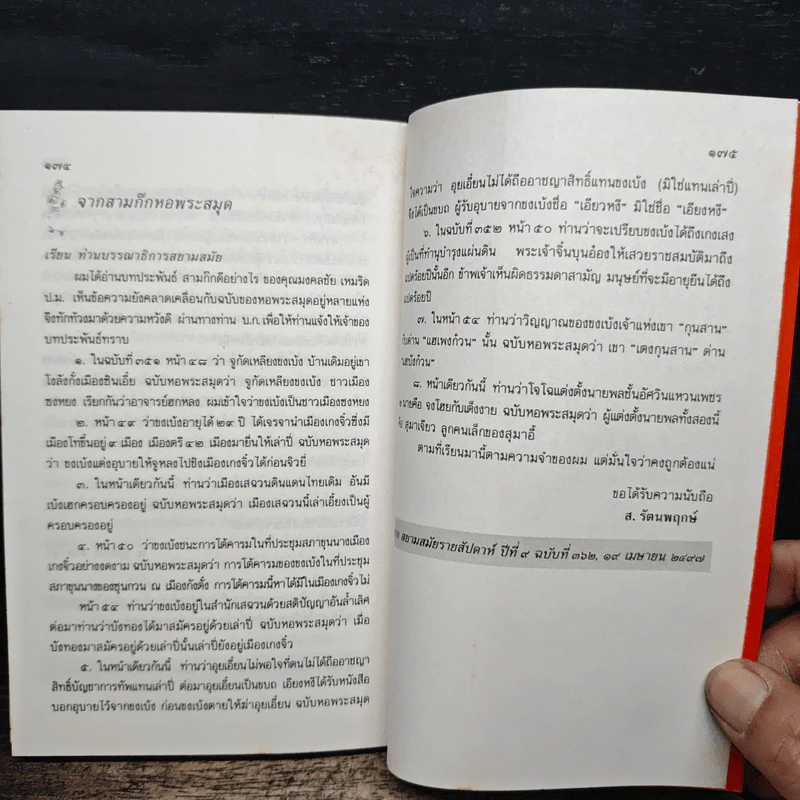 ๑๗๔
จากสามก๊กหอพระสมุด
เรียน ท่านบรรณาธิการสยามสมัย
ผมได้อ่านบทประพันธ์ สามก๊กดีอย่างไร ของคุณมงคลชัย เหมริด
ป.ม. เห็นข้อความยังคลาดเคลื่อนกับฉบับของหอพระสมุดอยู่หลายแห่ง
จึงทักท้วงมาด้วยความหวังดี ผ่านทางท่าน บ.ก. เพื่อให้ท่านแจ้งให้เจ้าของ
บทประพันธ์ทราบ
๑. ในฉบับที่ ๓๕๑ หน้า ๔๘ ว่า จูกัดเหลียงขงเบ้ง บ้านเดิมอยู่เขา
โงลังกั๋งเมืองซินเอี๋ย ฉบับหอพระสมุดว่า จูกัดเหลียงขงเบ้ง ชาวเมือง
ซงหยง เรียกกันว่าอาจารย์ฮกหลง ผมเข้าใจว่าขงเบ้งเป็นชาวเมืองซงหยง
๒. หน้า ๔๙ ว่าขงเบ้งอายุได้ ๒๙ ปี ได้เจรจานำเมืองเกงจิ๋วซึ่งมี
เมืองโทขึ้นอยู่ ๙ เมือง เมืองตรี ๔๒ เมืองมายื่นให้เล่าปี่ ฉบับหอพระสมุด
ว่า ขงเบ้งแต่งอุบายให้จูหลงไปชิงเมืองเกงจิ๋วได้ก่อนจิวยี่
๓. ในหน้าเดียวกันนี้ ท่านว่าเมืองเสฉวนดินแดนไทยเดิม อันมี
เบ้งเฮกครอบครองอยู่ ฉบับหอพระสมุดว่า เมืองเสฉวนนี้เล่าเจี้ยงเป็นผู้
ครอบครองอยู่
๔. หน้า ๕๐ ว่าขงเบ้งชนะการโต้คารมในที่ประชุมสภาขุนนางเมือง
เกงจิ๋วอย่างงดงาม ฉบับหอพระสมุดว่า การโต้คารมของขงเบ้งในที่ประชุม
สภาขุนนางของซุนกวน ณ เมืองกังตั๋ง การโต้คารมนี้หาได้มีในเมืองเกงจิ๋วไม่
หน้า ๕๔ ท่านว่าขงเบ้งอยู่ในสำนักเสฉวนด้วยสติปัญญาอันล้ำเลิศ
ต่อมาท่านว่าบังทองได้มาสมัครอยู่ด้วยเล่าปี่ ฉบับหอพระสมุดว่า เมื่อ
บังทองมาสมัครอยู่ด้วยเล่าปี่นั้นเล่าปี่ยังอยู่เมืองเกงจิ๋ว
๕. ในหน้าเดียวกันนี้ ท่านว่าอุยเอี๋ยนไม่พอใจที่ตนไม่ได้ถืออาชญา
สิทธิ์บัญชาการทัพแทนเล่าปี่ ต่อมาอุยเอี๋ยนเป็นขบถ เอียงหงีได้รับหนังสือ
บอกอุบายไว้จากขงเบ้ง ก่อนขงเบ้งตายให้ฆ่าอุยเอี๋ยน ฉบับหอพระสมุด
๑๗๕
ใจความว่า อุยเอี๋ยนไม่ได้ถืออาชญาสิทธิ์แทนขงเบ้ง (มิใช่แทนเล่าปี่)
จึงได้เป็นขบถ ผู้รับอุบายจากขงเบ้งชื่อ "เอียวหงี" มิใช่ชื่อ "เอียงหงี"
๖. ในฉบับที่ ๓๕๒ หน้า ๕๐ ท่านว่าจะเปรียบขงเบ้งได้ถึงเกงสง
ผู้เป็นที่ทำนุบำรุงแผ่นดิน พระเจ้าจิ๋นบุนอ๋องให้เสวยราชสมบัติมาถึง
แปดร้อยปีนั้นอีก ข้าพเจ้าเห็นผิดธรรมดาสามัญ มนุษย์ที่จะมีอายุยืนได้ถึง
แปดร้อยปี
๗. ในหน้า ๕๔ ท่านว่าวิญญาณของขงเบ้งเจ้าแห่งเขา "กุนสาน"
กับด่าน "แฮเพงก๋วน" นั้น ฉบับหอพระสมุดว่า เขา "เตงกุนสาน" ด่าน
๘. หน้าเดียวกันนี้ ท่านว่าโจโฉแต่งตั้งนายพลชั้นอัศวินแหวนเพชร
นายคือ จงโฮยกับเต็งงาย ฉบับหอพระสมุดว่า ผู้แต่งตั้งนายพลทั้งสองนี้
คือ สุมาเจียว ลูกคนเล็กของสุมาอี้
ตามที่เรียนมานี้ตามความจำของผม แต่มั่นใจว่าคงถูกต้องแน่
ขอได้รับความนับถือ
ส. รัตนพฤกษ์
สยามสมัยรายสัปดาห์ ปีที่ ๙ ฉบับที่ ๓๖๒, ๑๙ เมษายน ๒๔๙๗